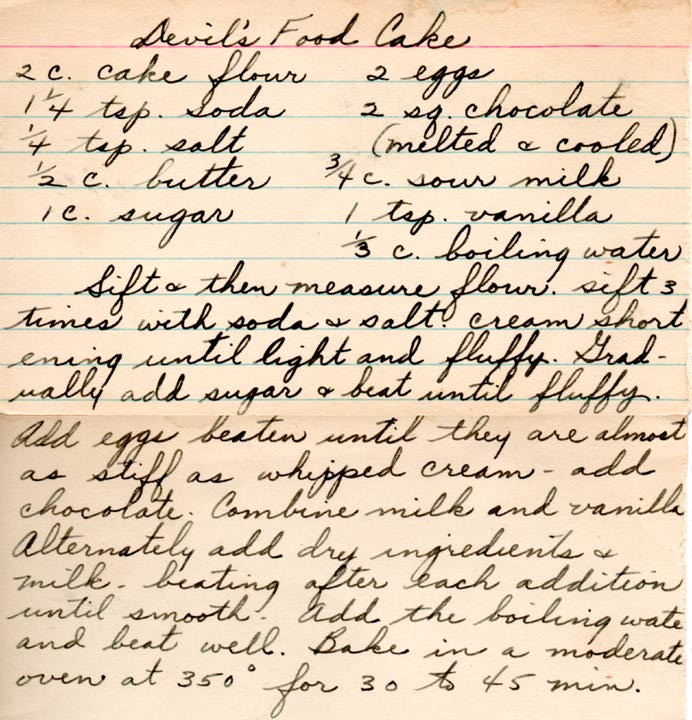 Devil's Food Cake
2 c. cake flour 2 eggs
1 1/4 tsp. soda 2 sq. chocolate
1/4 tsp. salt (melted & cooled)
1/2 c. butter 3/4 c. sour milk
1 c. sugar 1 tsp. vanilla
1/3 c. boiling water
Sift & then measure flour. sift 3
times with soda & salt. cream short
ening until light and fluffy. Grad-
ually add sugar & beat until fluffy.
Add eggs beaten until they are almost
as stiff as whipped cream - add
chocolate. Combine milk and vanilla
Alternately add dry ingredients &
milk - beating after each addition
until smooth. Add the boiling wate
and beat well. Bake in a moderate
oven at 350° for 30 to 45 min.